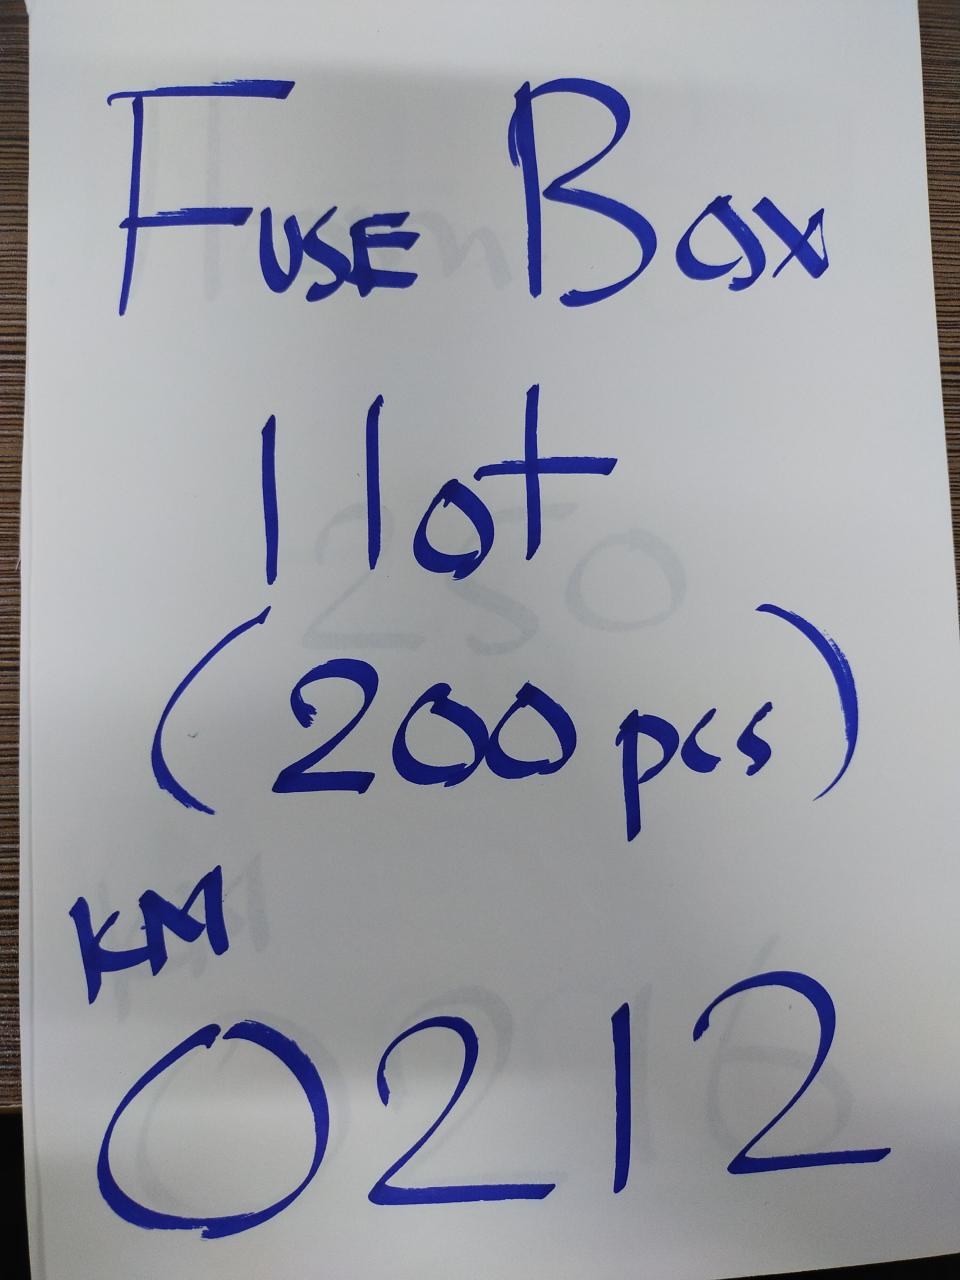 Fuse Box
1 lot
(200 pcs)
KM
0212